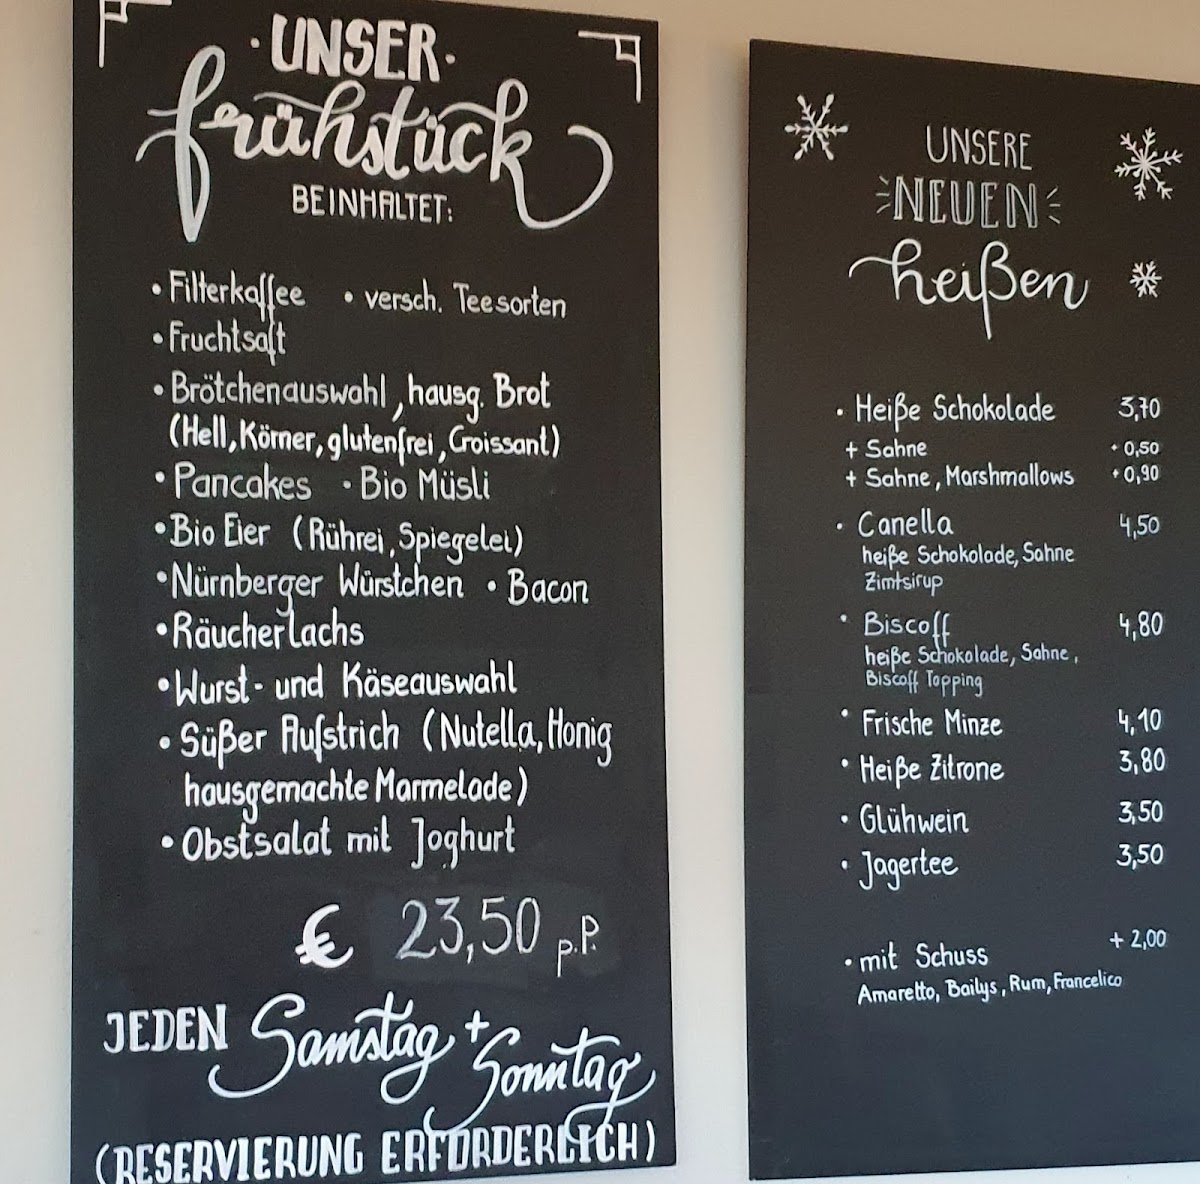 · UNSER ·
frühstück
BEINHALTET:
• Filterkaffee • versch. Teesorten
• Fruchtsaft
• Brötchenauswahl, hausg. Brot
(Hell, Körner, glutenfrei, Croissant)
• Pancakes • Bio Müsli
• Bio Eier (Rührei, Spiegelei)
• Nürnberger Würstchen • Bacon
• Räucherlachs
• Wurst- und Käseauswahl
• Süßer Aufstrich (Nutella, Honig
hausgemachte Marmelade)
• Obstsalat mit Joghurt
€ 23,50 p.P.
JEDEN Samstag +
Sonntag
(RESERVIERUNG ERFORDERLICH)
UNSERE
NEUEN
heißen
• Heiße Schokolade 3,70
+ Sahne + 0,50
+ Sahne, Marshmallows + 0,90
• Canella 4,50
heiße Schokolade, Sahne
Zimtsirup
• Biscoff 4,80
heiße Schokolade, Sahne,
Biscoff Topping
• Frische Minze 4,10
• Heiße Zitrone 3,80
• Glühwein 3,50
• Jagertee 3,50
• mit Schuss + 2,00
Amaretto, Bailys, Rum, Francelico